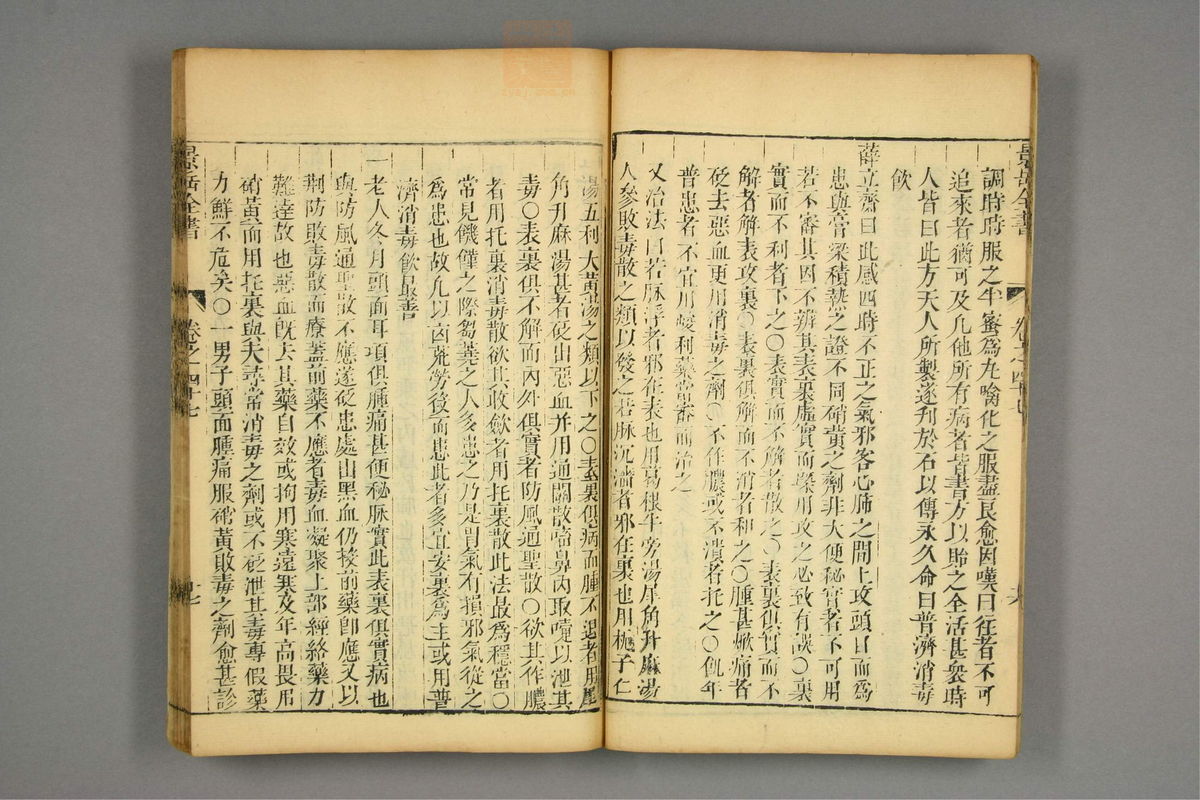 景岳全書
卷之四十七
調時時服之半蜜為丸噙化之服盡良愈因嘆曰往者不可
追來者猶可及凡他所有病者皆書方以貽之全活甚衆時
人皆曰此方天人所製遂刊於石以傳永久命曰普濟消毒
飲
薛立齋曰此感四時不正之氣邪客心肺之間上攻頭目而為
患與膏粱積熱之證不同硝黃之劑非大便秘實者不可用
若不審其因不辨其表裏虛實而驟用攻之必致有誤○裏
實而不利者下之○表實而不解者散之○表裏俱實而不
解者解表攻裏○表裏俱解而不消者和之○腫甚焮痛者
砭去惡血更用消毒之劑○不作膿或不潰者托之○飢年
普患者不宜用峻利藥當審而治之
又治法曰若脉浮者邪在表也用葛根牛旁湯犀角升麻湯
人參敗毒散之類以發之若脉沉濇者邪在裏也用桃子仁
湯五利大黃湯之類以下之○表裏俱病而腫不退者用犀
角升麻湯甚者砭出惡血并用通關散㗜鼻內取嚏以泄其
毒○表裏俱不解而內外俱實者防風通聖散○欲其作膿
者用托裏消毒散欲其收斂者用托裏散此法最為穩當○
常見饑饉之際芻蕘之人多患之乃是胃氣有損邪氣從之
為患也故凡以凶荒勞役而患此者多宜安裏為主或用普
濟消毒飲最善
一老人冬月頭面耳項俱腫痛甚便秘脉實此表裏俱實病也
與防風通聖散不應遂砭患處出黑血仍投前藥卽應又以
荆防敗毒散而療蓋前藥不應者毒血凝聚上部經絡藥力
難達故也惡血旣去其藥自效或拘用寒遠寒及年高畏用
硝黃而用托裏與夫尋常消毒之劑或不砭泄其毒專假藥
力鮮不危矣○一男子頭面腫痛服硝黃敗毒之劑愈甚診
景岳全書
卷之四十七